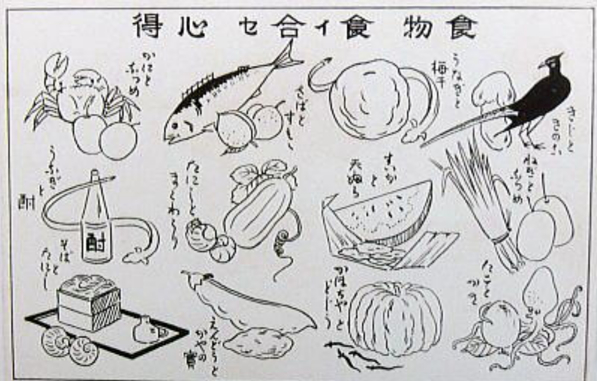 食物食イ合セ心得
きじと
きのこ
うなぎと
梅干
さばと
すもゝ
かにと
なつめ
ねぎと
なつめ
すいか
と
天ぷら
たにしと
まくわうり
うなぎ
と
酎
酎
かぼちやと
どじよう
えんどうと
かやの實
そばと
たにし